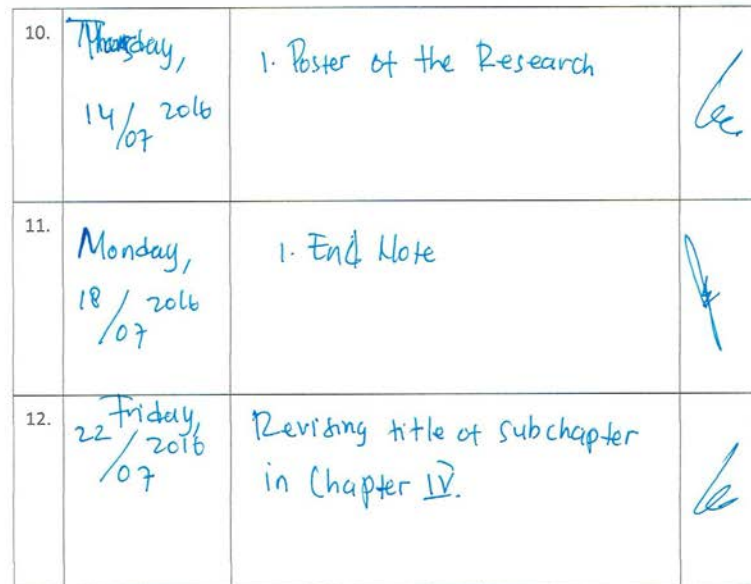 10.
Thursday,
14/07 2016
1. Poster of the Research
11.
Monday,
18/07 2016
1. End Note
12.
Friday,
22/07 2016
Revising title of subchapter
in Chapter IV.